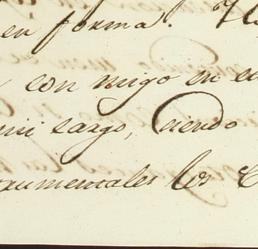 en forma.
con migo en el
mi cargo, siendo
trumentales los